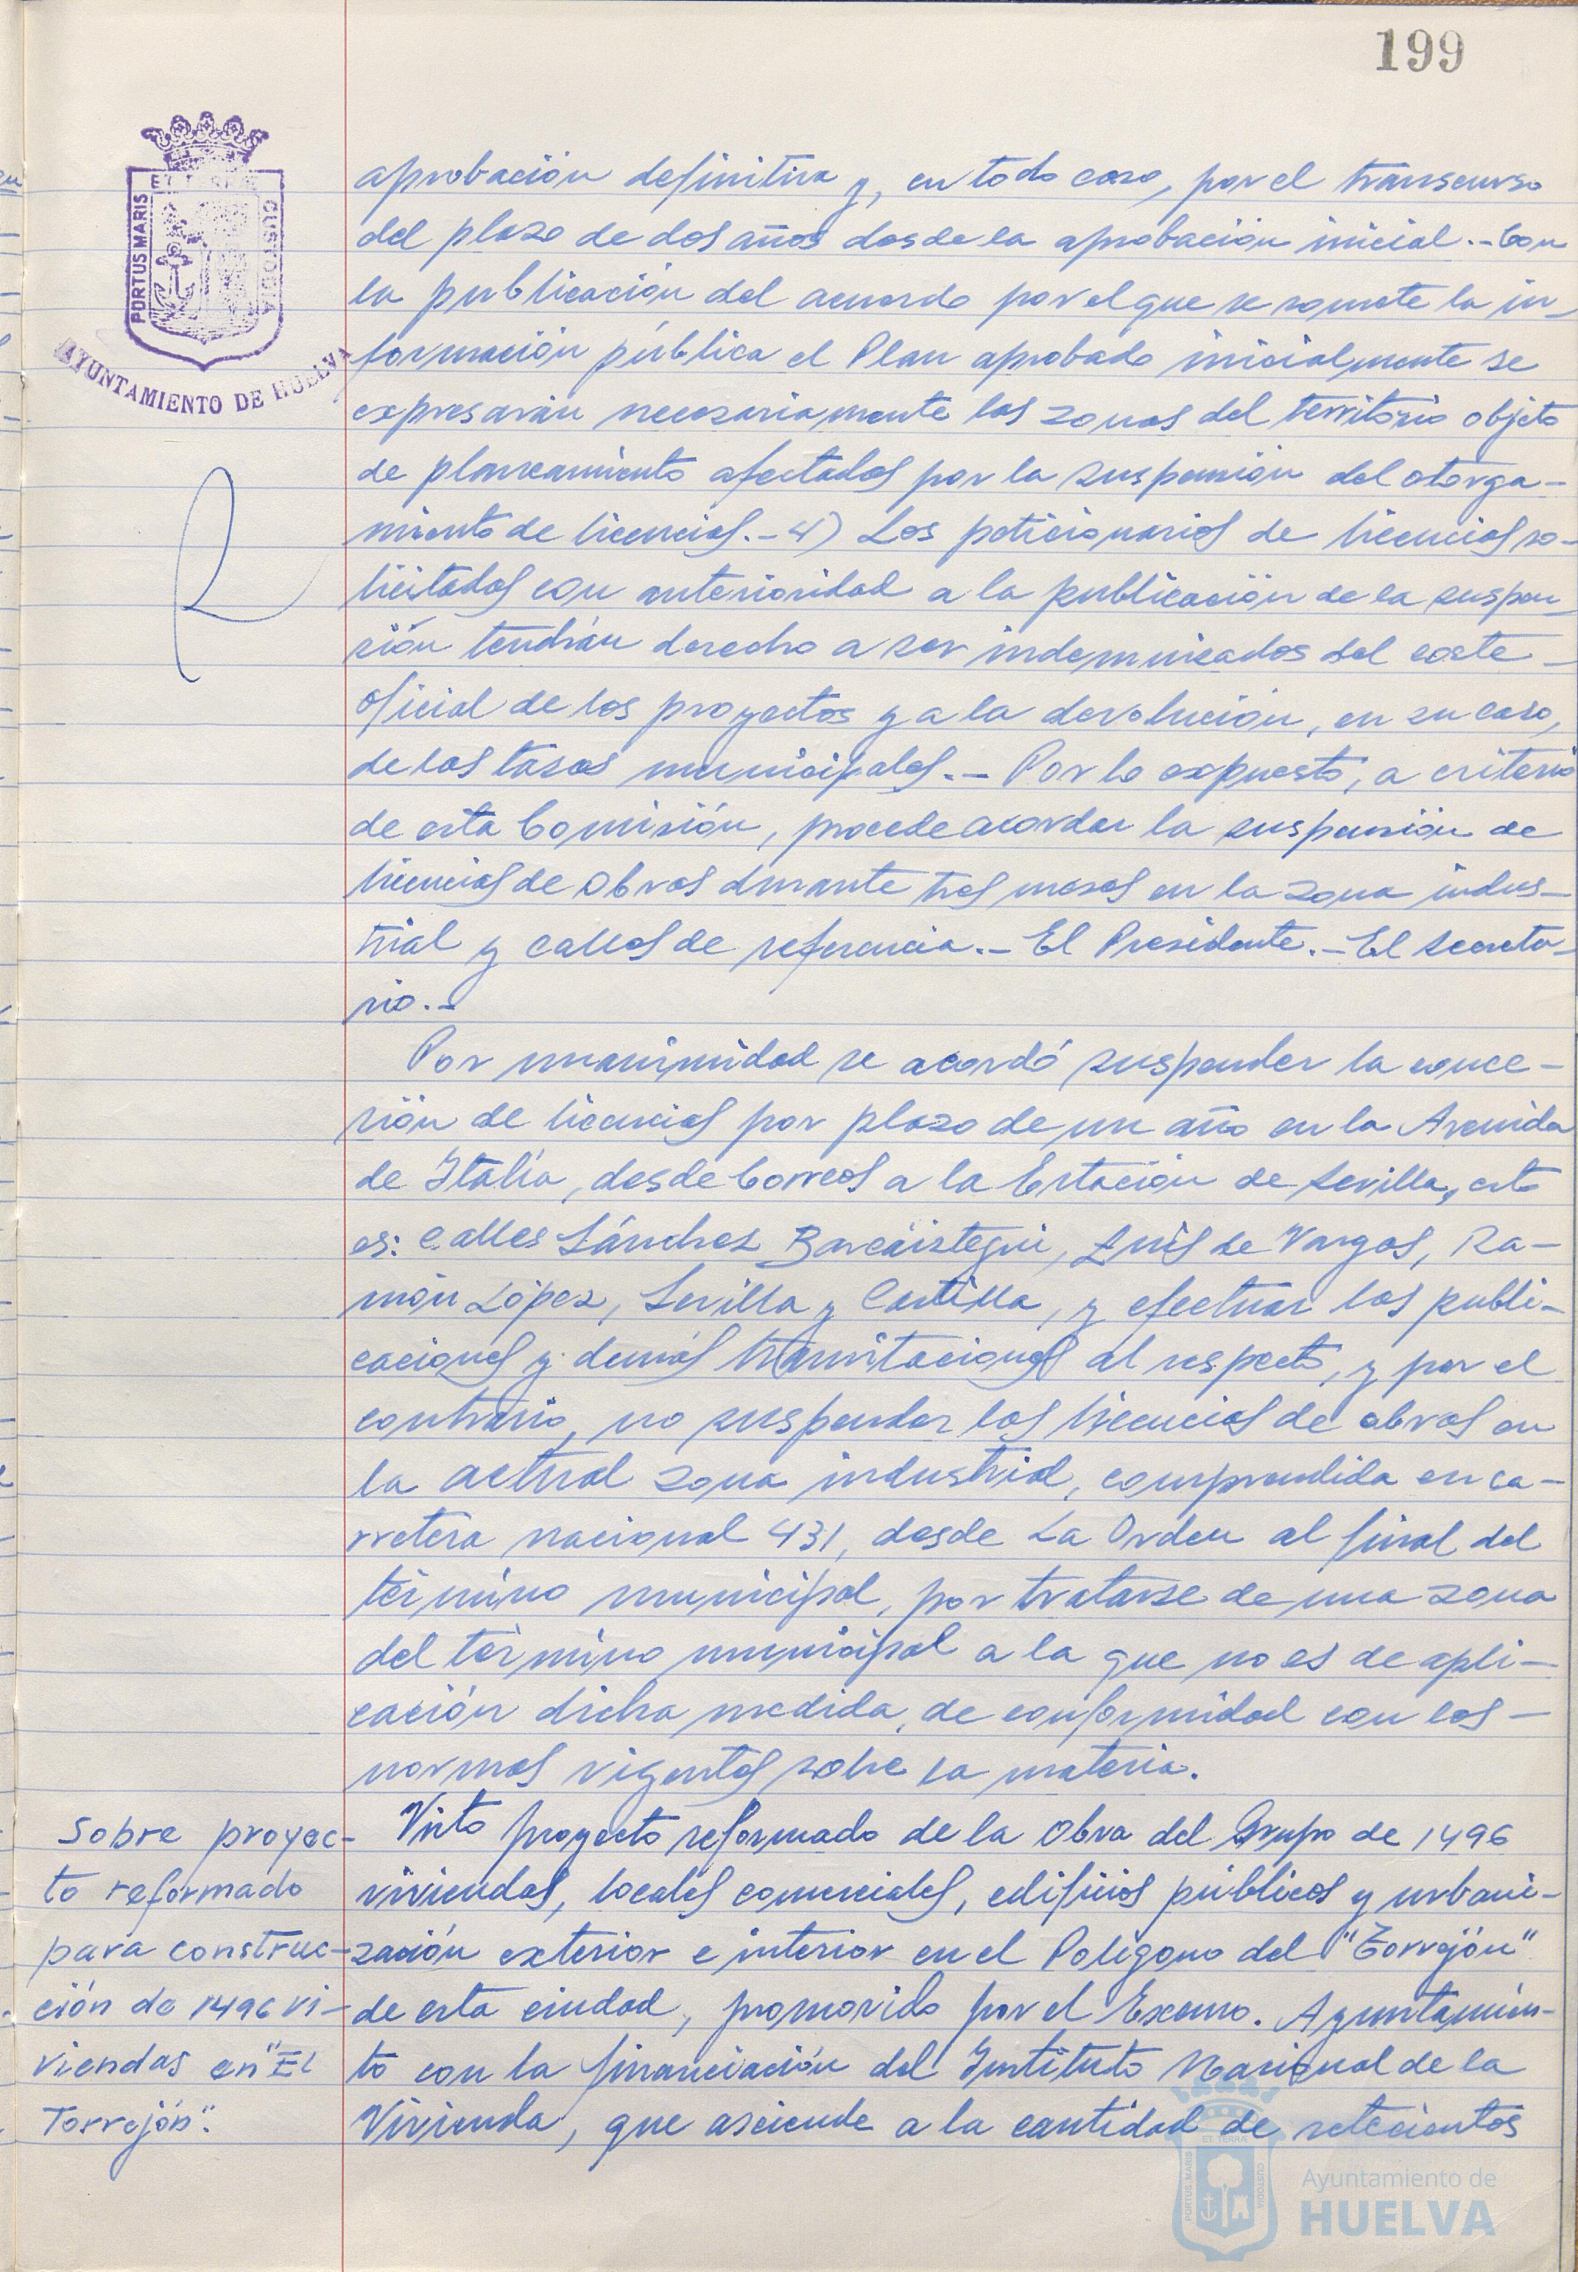 199
PORTUS MARIS
ET TERRE
CUSTODIA
AYUNTAMIENTO DE HUELVA
aprobación definitiva y, en todo caso, por el transcurso
del plazo de dos años desde la aprobación inicial.- Con
la publicación del acuerdo por el que se somete la in-
formación pública el Plan aprobado inicialmente se
expresarán necesariamente las zonas del territorio objeto
de planeamiento afectadas por la suspensión del otorga-
miento de licencias.- 4) Los peticionarios de licencias so-
licitadas con anterioridad a la publicación de la suspen-
sión tendrán derecho a ser indemnizados del coste
oficial de los proyectos y a la devolución, en su caso,
de las tasas municipales.- Por lo expuesto, a criterio
de esta Comisión, procede acordar la suspensión de
licencias de obras durante tres meses en la zona indus-
trial y calles de referencia.- El Presidente.- El Secreta-
rio.-
Por unanimidad se acordó suspender la conce-
sión de licencias por plazo de un año en la Avenida
de Italia, desde Correos a la Estación de Sevilla, esto
es: calles Sánchez Barcáiztegui, Luis de Vargas, Ra-
món López, Sevilla y Castilla, y efectuar las publi-
caciones y demás tramitaciones al respecto, y por el
contrario, no suspender las licencias de obras en
la actual zona industrial, comprendida en ca-
rretera nacional 431, desde La Orden al final del
término municipal, por tratarse de una zona
del término municipal a la que no es de apli-
cación dicha medida, de conformidad con las
normas vigentes sobre la materia.
Sobre proyec-
to reformado
para construc-
ción de 1496 vi-
viendas en "El
Torrejón".
Visto proyecto reformado de la Obra del Grupo de 1496
viviendas, locales comerciales, edificios públicos y urbani-
zación exterior e interior en el Polígono del "Torrejón"
de esta ciudad, promovido por el Excmo. Ayuntamien-
to con la financiación del Instituto Nacional de la
Vivienda, que asciende a la cantidad de setecientos
Ayuntamiento de
HUELVA